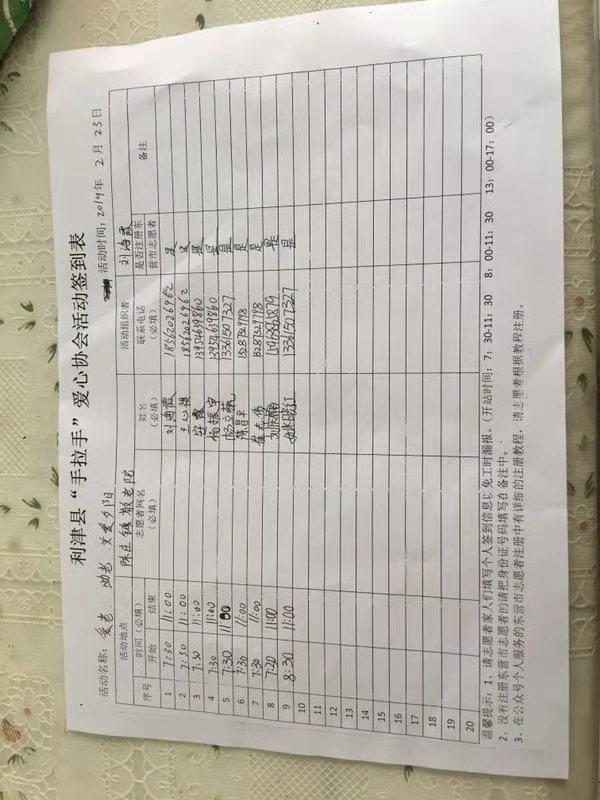 利津县“手拉手”爱心协会活动签到表
活动名称：爱老 助老 关爱夕阳 活动时间：2019年 2 月 23 日
活动地点 陈庄镇敬老院 活动组织者 刘海霞
序号 时间（必填） 志愿者网名（必填） 姓名（必填） 联系电话（必填） 是否注册东营市志愿者 备注
开始 结束
1 7:30 11:00 刘海霞 18562026962 是
2 7:30 11:00 王心祺 18562026962 是
3 7:30 11:00 安霞 13954639860 是
4 7:30 11:00 杨振宇 13954639860 是
5 7:30 11:00 杨立凯 13361507327 是
6 7:30 11:00 陈日平 是
7 7:30 11:00 是
8 7:20 11:00 是
9 8:30 11:00 姚晓红 13361507327 是
10
11
12
13
14
15
16
17
18
19
20
温馨提示：1、请志愿者家人们填写个人签到信息以免工时漏报。（开站时间：7：30-11：30 8：00-11：30 13：00-17：00）
2、没有注册东营市志愿者的请把身份证号码填写在备注中。
3、在公众号个人服务的东营市志愿者注册中有详细的注册教程，请志愿者根据教程注册。